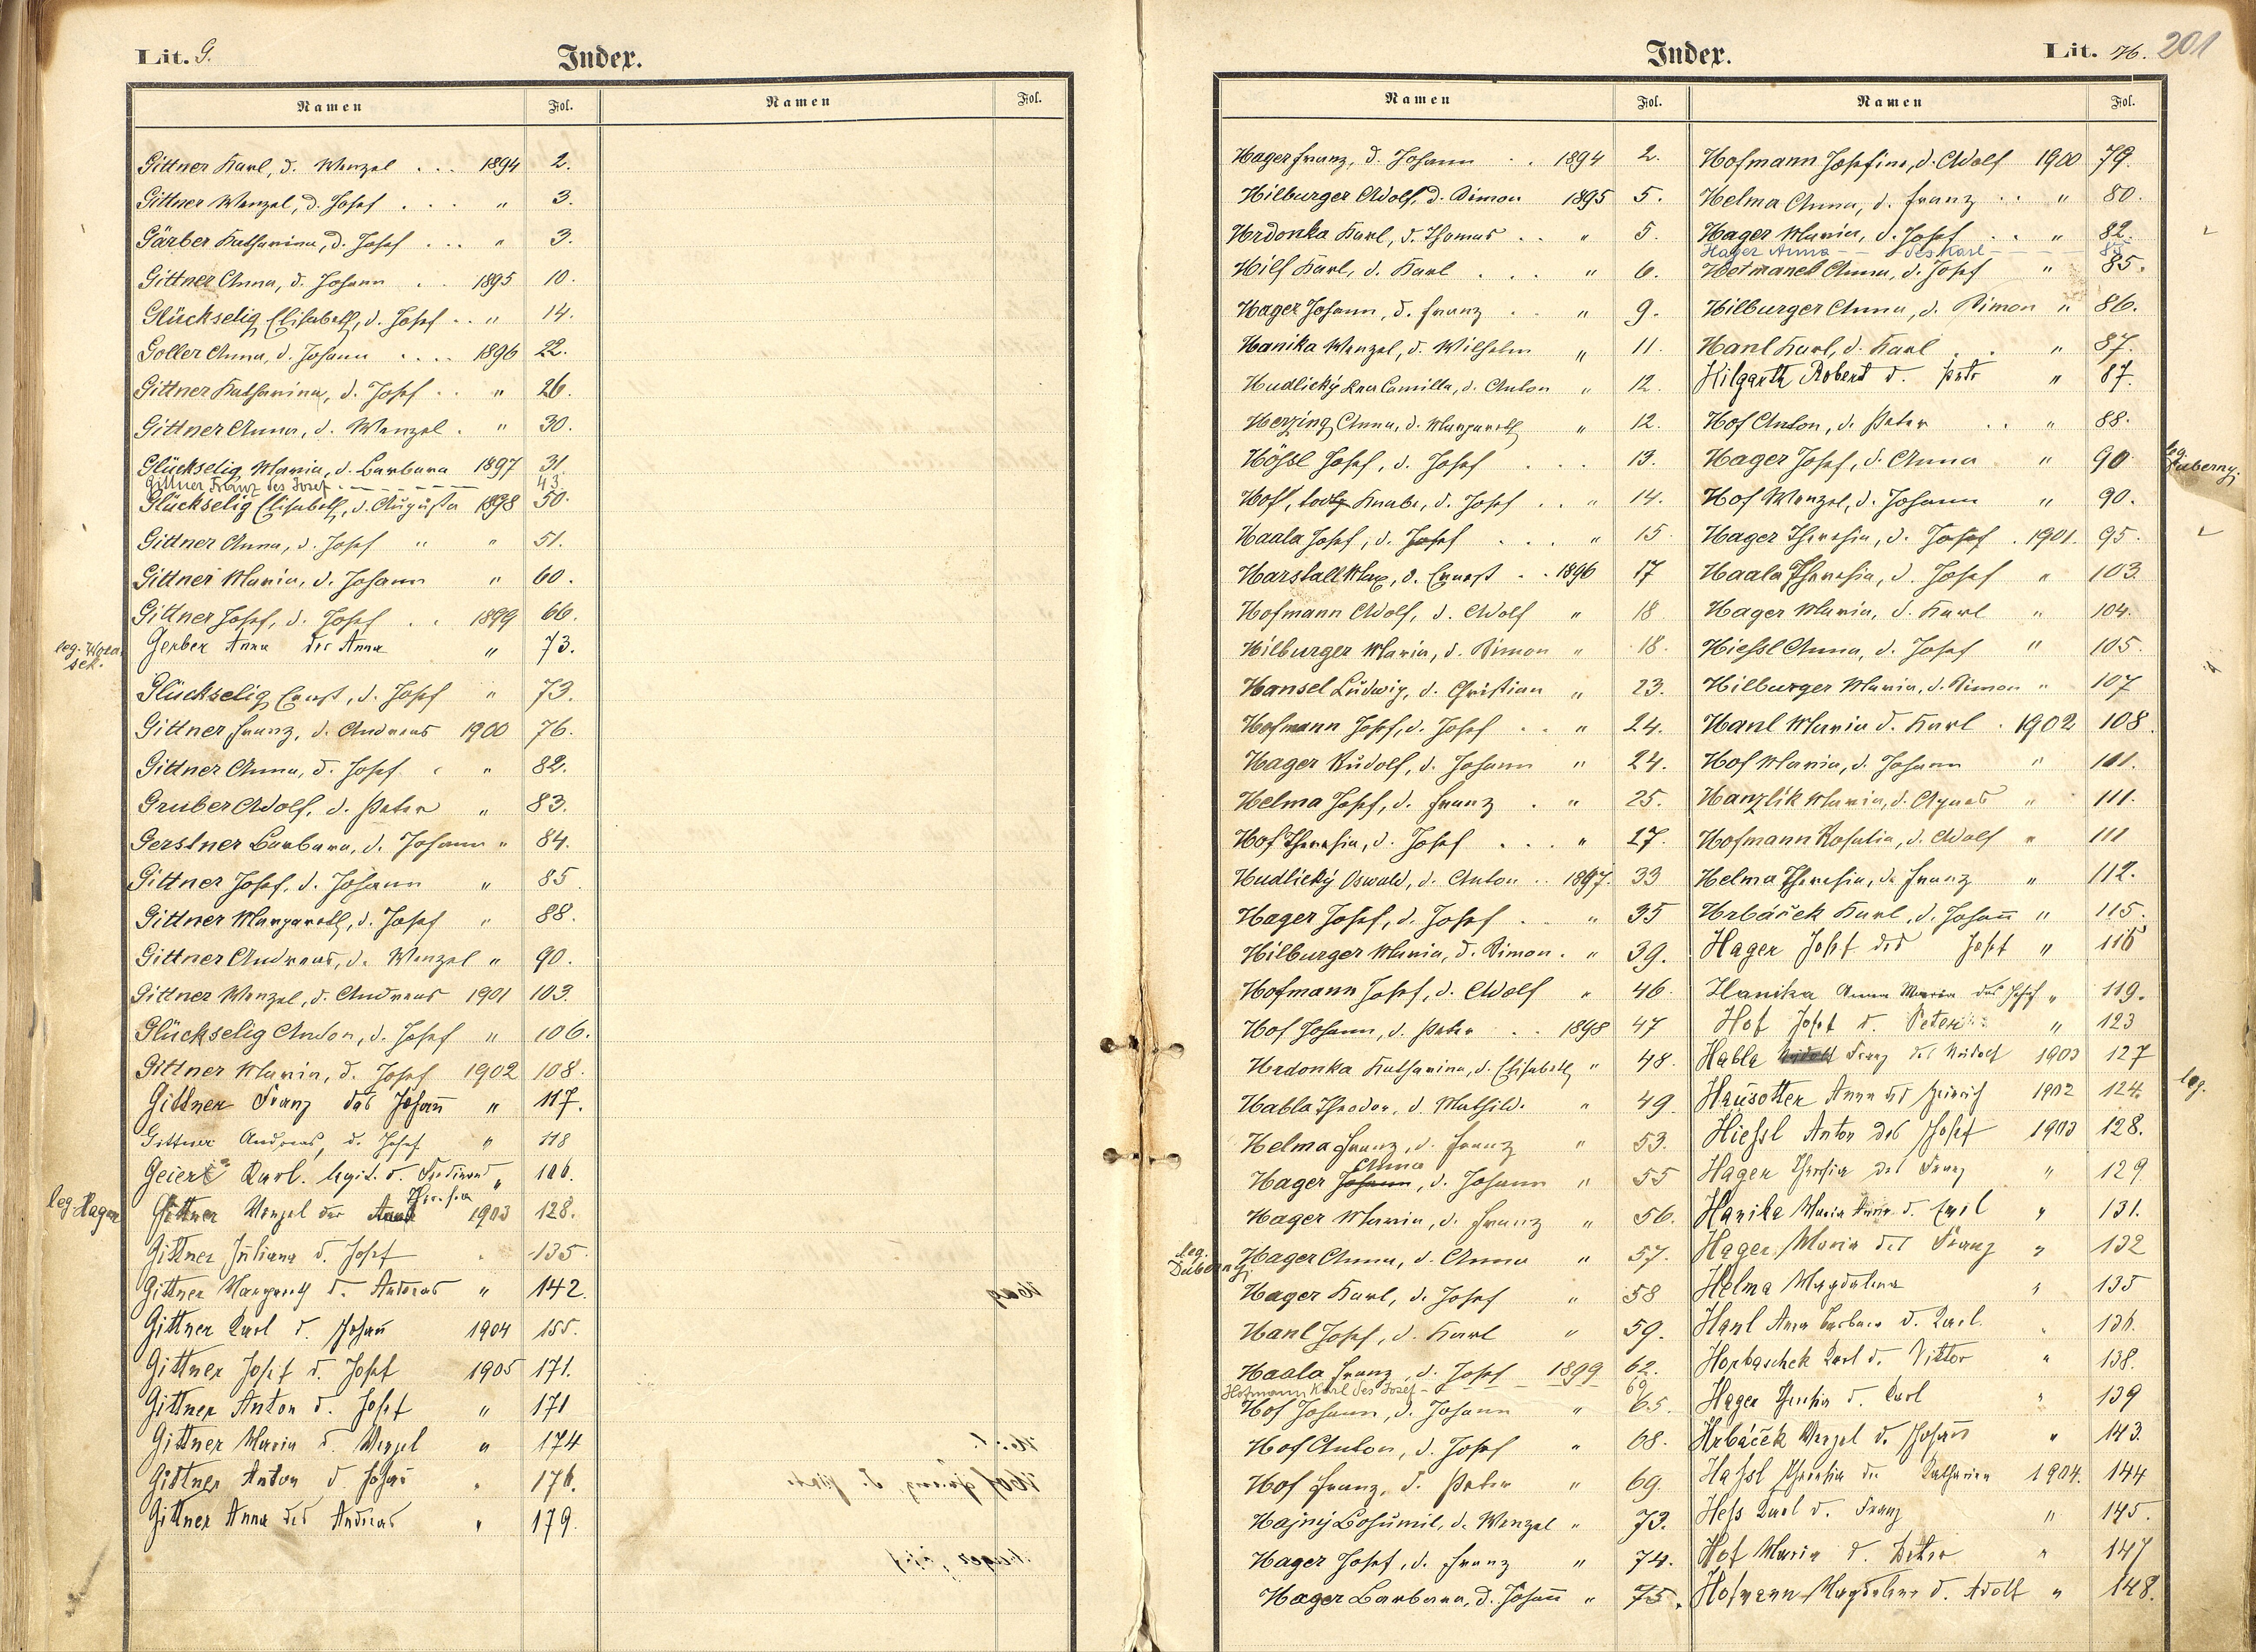 Lit. G.
Index.
Namen Fol. Namen Fol.
Gittner Karl, d. Wenzel . . . 1894 2.
Gittner Wenzel, d. Josef . . . " 3.
Gärber Katharina, d. Josef . . . " 3.
Gittner Anna, d. Johann . . 1895 10.
Glückselig Elisabeth, d. Josef . . " 14.
Goller Anna, d. Johann . . . . 1896 22.
Gittner Katharina, d. Josef . . " 26.
Gittner Anna, d. Wenzel . " 30.
Glückselig Maria, d. Barbara 1897 31.
Gittner Franz des Josef 43.
Glückselig Elisabeth, d. Augusta 1898 50.
Gittner Anna, d. Josef " " 51.
Gittner Maria, d. Johann " 60.
Gittner Josef, d. Josef . . 1899 66.
leg.
Gerber Anna der Anna " 73.
Glückselig Ernst, d. Josef " 73.
Gittner Franz, d. Andreas 1900 76.
Gittner Anna, d. Josef . " 82.
Gruber Adolf, d. Peter " 83.
Gerstner Barbara, d. Johann " 84.
Gittner Josef, d. Johann " 85.
Gittner Margareth, d. Josef " 88.
Gittner Andreas, d. Wenzel " 90.
Gittner Wenzel, d. Andreas 1901 103.
Glückselig Anton, d. Josef " 106.
Gittner Maria, d. Josef 1902 108.
Gittner Franz des Johann " 117.
Gittner Andreas, d. Josef " 118
Geier Karl. legit. d. Ferdinand "
Theresia
leg. Hager Gittner Wenzel der 1903 128.
Gittner Juliana d. Josef " 135.
Gittner Margareth d. Andreas " 142.
Gittner Karl d. Johann 1904 155.
Gittner Josef d. Josef 1905 171.
Gittner Anton d. Josef " 171
Gittner Maria d. Wenzel " 174
Gittner Anton d. Johann " 176.
Gittner Anna des Andreas " 179.
Index.
Lit. H. 201
Namen Fol. Namen Fol.
Hager Franz, d. Johann . . 1894 2.
Hilburger Adolf, d. Simon 1895 5.
Hrdonka Karl, d. Thomas . . " 5.
Hilf Karl, d. Karl . . . " 6.
Hager Johann, d. Franz . . " 9.
Hanika Wenzel, d. Wilhelm " 11.
Hudlický Camilla, d. Anton " 12.
Herzing Anna, d. Margareth " 12.
Hößl Josef, d. Josef . . . 13.
Hofl, todtg. Knabe, d. Josef . . " 14.
Haala Josef, d. Josef . . . " 15.
Harstall Max, d. Ernest . . 1896 17
Hofmann Adolf, d. Adolf " 18
Hilburger Maria, d. Simon " 18.
Hansel Ludwig, d. Christian " 23.
Hofmann Josef, d. Josef . . " 24.
Hager Rudolf, d. Johann " 24.
Helma Josef, d. Franz . " 25.
Hof Theresia, d. Josef . . . " 27.
Hudlický Oswald, d. Anton . . 1897. 33
Hager Josef, d. Josef . . " 35
Hilburger Maria, d. Simon . " 39.
Hofmann Josef, d. Adolf " 46.
Hof Johann, d. Peter . . 1898 47
Hrdonka Katharina, d. Elisabeth " 48.
Habla Theodor, d. Mathild. " 49.
Helma Franz, d. Franz " 53.
Anna
Hager Johann, d. Johann " 55
Hager Maria, d. Franz " 56.
leg. Duberny Hager Anna, d. Anna " 57.
Hager Karl, d. Josef " 58
Hanl Josef, d. Karl " 59.
Haala Franz, d. Josef 1899 62.
Hofmann Karl des Josef
Hof Johann, d. Johann " 65.
Hof Anton, d. Josef " 68.
Hof Franz, d. Peter " 69.
Hajný Bohumil, d. Wenzel " 73.
Hager Josef, d. Franz " 74.
Hager Barbara, d. Johann " 75.
Hofmann Josefine, d. Adolf 1900 79.
Helma Anna, d. Franz . . " 80.
Hager Maria, d. Josef . . " 82.
Hager Anna - des Karl 85
Hetmanek Anna, d. Josef " 85.
Hilburger Anna, d. Simon " 86.
Hanl Karl, d. Karl . . " 87.
Hilgarth Robert d. " 87.
Hof Anton, d. Peter . . " 88.
Hager Josef, d. Anna " 90 leg. Duberny.
Hof Wenzel, d. Johann " 90.
Hager Theresia, d. Josef . 1901. 95.
Haala Theresia, d. Josef " 103.
Hager Maria, d. Karl " 104.
Hießl Anna, d. Josef " 105.
Hilburger Maria, d. Simon " 107
Hanl Maria d. Karl . 1902 108.
Hof Maria, d. Johann " 111.
Hanzlík Maria, d. Agnes " 111.
Hofmann Rosalia, d. Adolf " 111
Helma Theresia, d. Franz " 112.
Hrbáček Karl, d. Johann " 115.
Hager Josef des Josef " 116
Hanika Anna Maria des Josef " 119.
Hof Josef d. Peter " 123
Habla Franz des Rudolf 1903 127
Hausotter Anna des Heinrich 1902 124. leg.
Hießl Anton des Josef 1903 128.
Hager Theresia des Franz " 129
Hanika Maria Anna d. Emil " 131.
Hager Maria des Franz " 132
Helma Magdalena " 135
Hanl Anna Barbara d. Karl. " 136.
Horbaschek Karl d. Viktor " 138.
Hager Theresia d. Karl " 139
Hrbáček Wenzel d. Johann " 143.
Haßl Theresia der Katharina 1904. 144
Heß Karl d. Franz " 145.
Hof Maria d. Peter " 147
Hofmann Magdalena d. Adolf " 148.